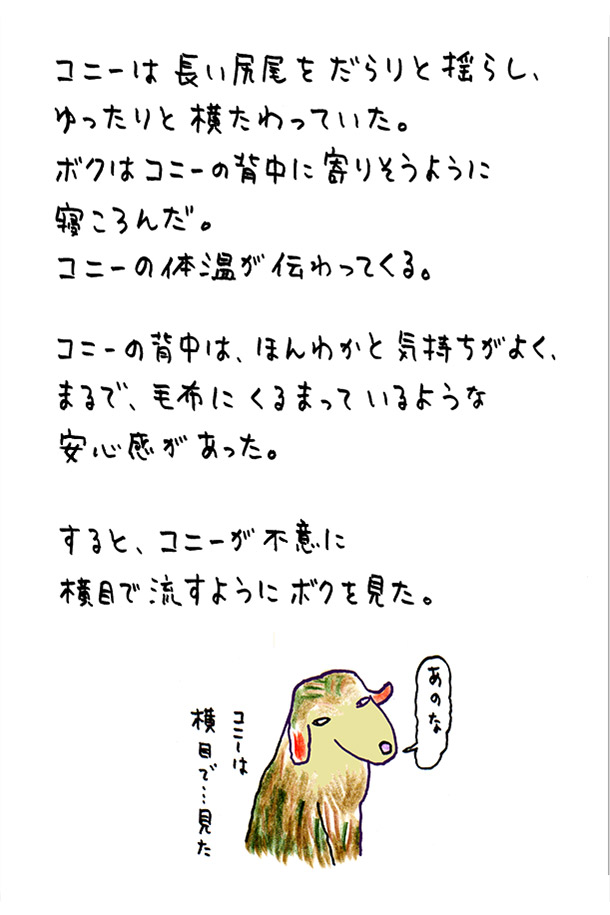 コニーは長い尻尾をだらりと揺らし、
ゆったりと横たわっていた。
ボクはコニーの背中に寄りそうように
寝ころんだ。
コニーの体温が伝わってくる。
コニーの背中は、ほんわかと気持ちがよく、
まるで、毛布にくるまっているような
安心感があった。
すると、コニーが不意に
横目で流すようにボクを見た。
あのな
コニーは
横目で…見た